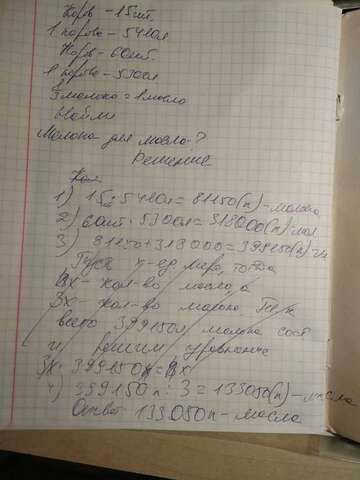 Коров - 15шт.
1 корова - 5410л
Коров - 60шт.
1 корова - 5300л
3 молоко = 1 масло
Найти
Молока для масла-?
Решение
Кол
1) 15 · 5410л = 81150(л) - молока
2) 60шт · 5300л = 318000(л) - мол
3) 81150 + 318000 = 399150(л) - м
Пусть х - ед. мера, тогда
х - кол-во масло, а
3х - кол-во молоко.
всего 399150л молока сост
и решим уравнение
3х · 399150 =
4) 399150л : 3 = 133050(л) - масла
Ответ 133.050л - масла